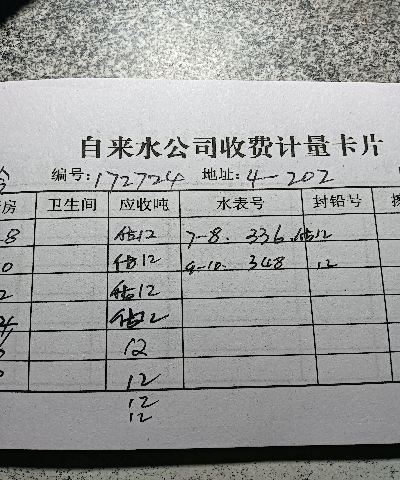 自来水公司收费计量卡片
编号:172724 地址:4-202
房 卫生间 应收吨 水表号 封铅号
8 估12 7-8. 336. 估12
0 估12 9-10. 348 12
2 估12
估12
12
12
12
12